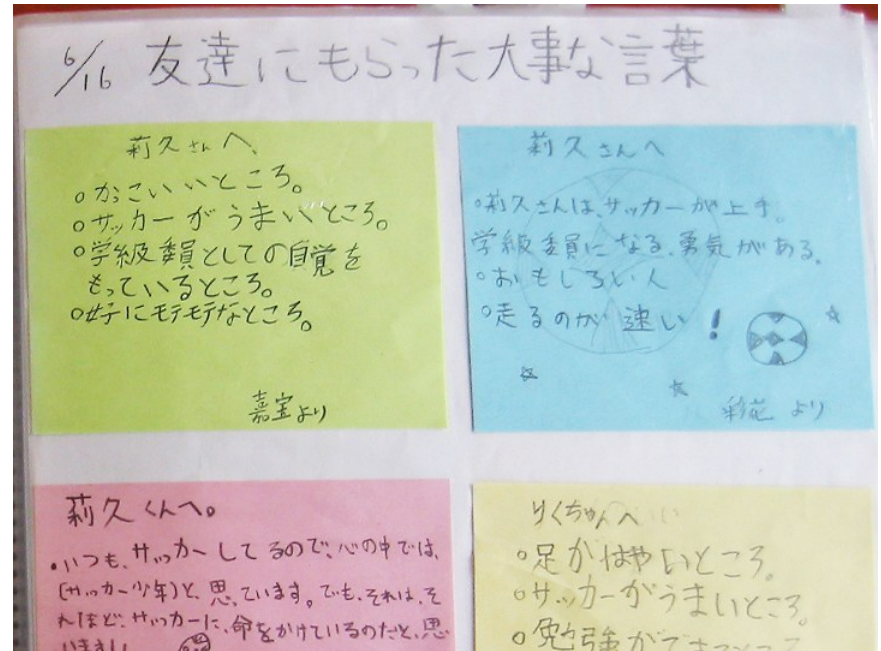 6/16 友達にもらった大事な言葉
莉久さんへ、
○かっこいいところ。
○サッカーがうまいところ。
○学級委員としての自覚を
もっているところ。
○女子にモテモテなところ。
嘉宝より
莉久さんへ
○莉久さんは、サッカーが上手。
学級委員になる、勇気がある。
○おもしろい人
○走るのが速い!
彩花より
莉久くんへ。
・いつも、サッカーしてるので、心の中では、
(サッカー少年)と、思っています。でも、それは、そ
れほど、サッカーに、命をかけているのだと、思
いました
りくちゃんへ
○足がはやいところ。
○サッカーがうまいところ。
○勉強ができるところ